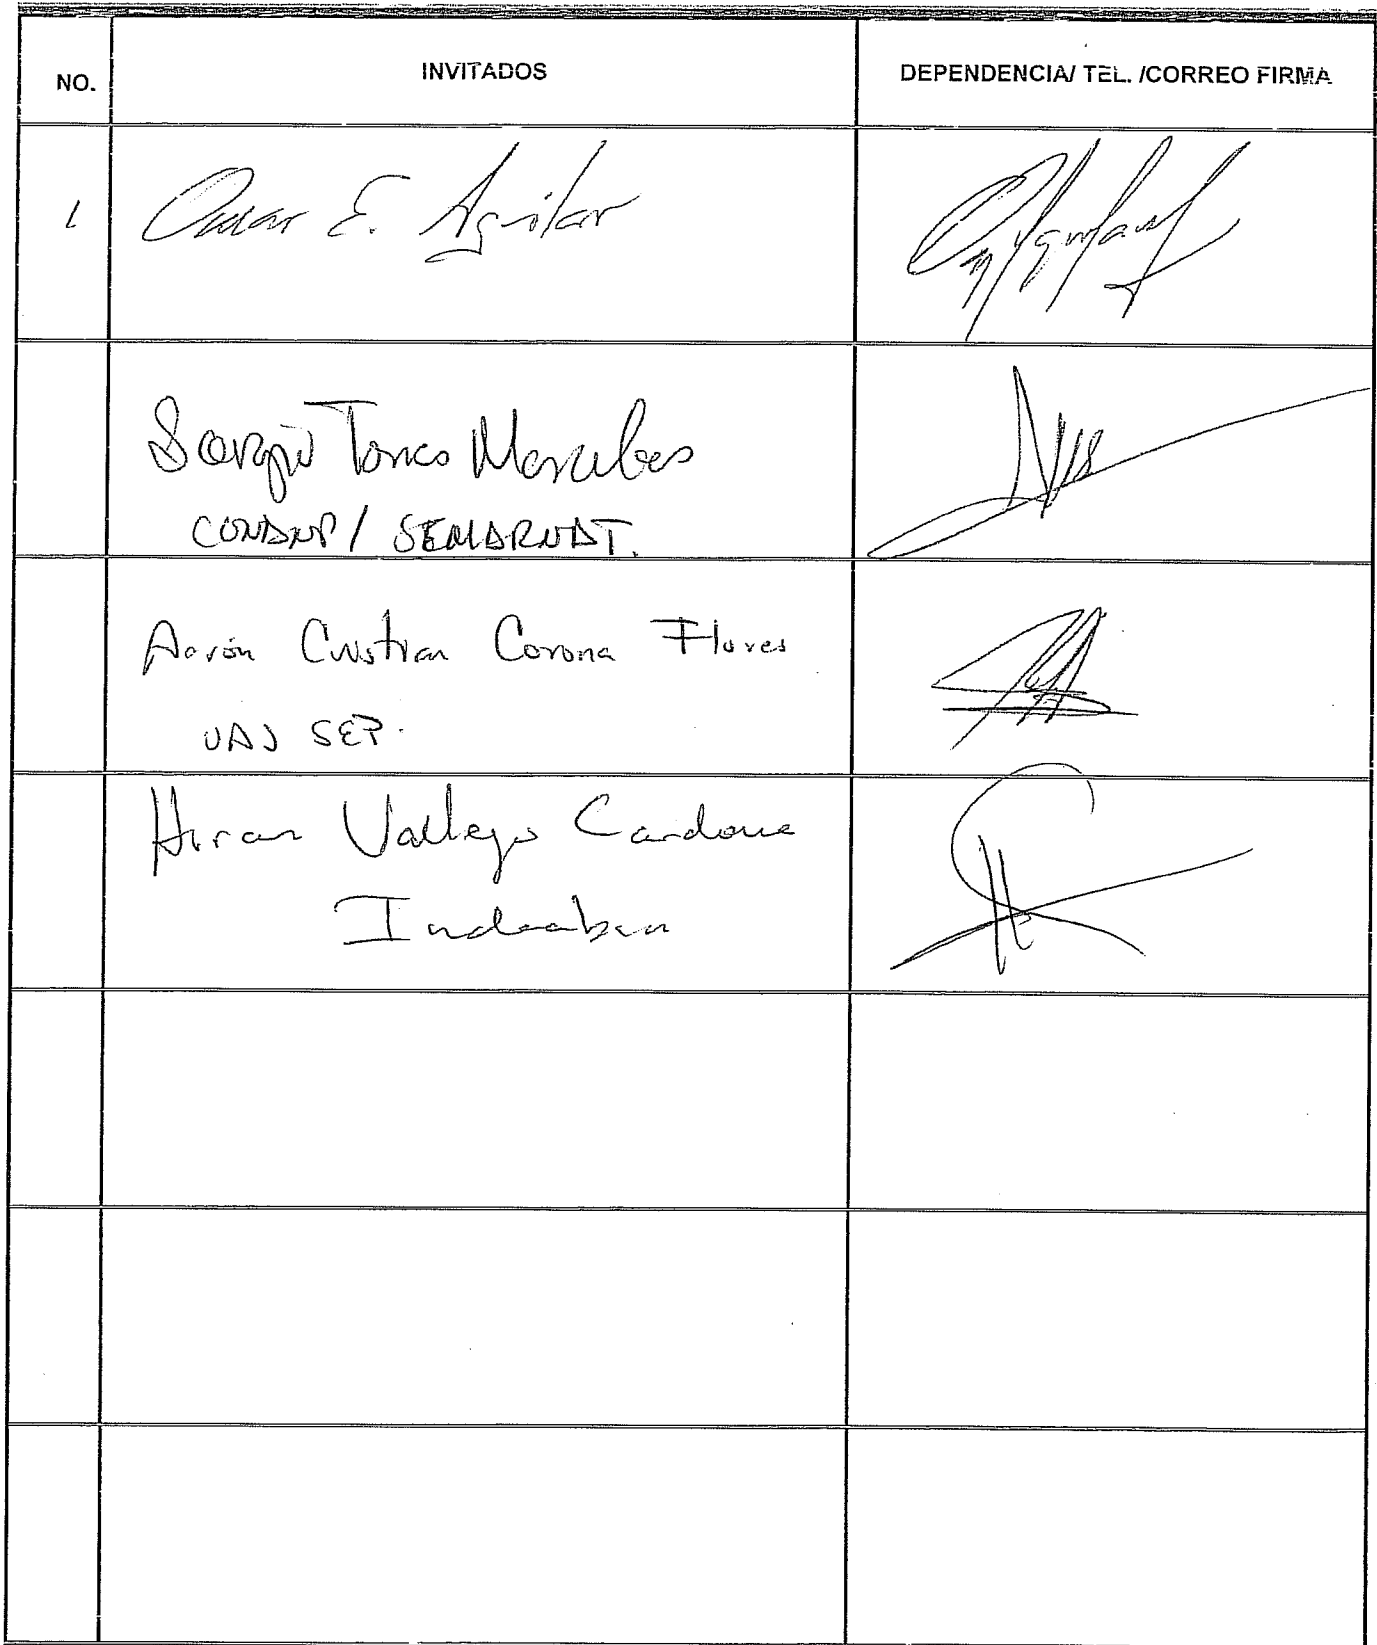 NO. INVITADOS DEPENDENCIA/ TEL. /CORREO FIRMA
1 Omar E. Aguilar
Sergio Torres Morales
CONANP / SEMARNAT.
Aarón Cristian Corona Flores
UAJ SEP.
Hiran Vallejo Cardone
Indaabin